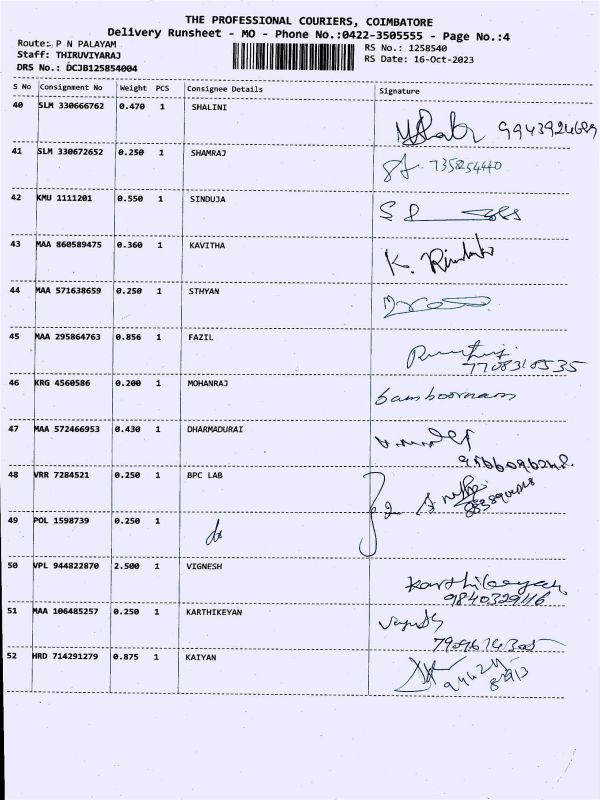 THE PROFESSIONAL COURIERS, COIMBATORE
Delivery Runsheet - MO - Phone No.:0422-3505555 - Page No.:4
Route: P N PALAYAM
RS No.: 1258540
Staff: THIRUVIYARAJ
RS Date: 16-Oct-2023
DRS No.: DCJB125854004
S No Consignment No Weight PCS Consignee Details Signature
40 SLM 330666762 0.470 1 SHALINI
41 SLM 330672652 0.250 1 SHAMRAJ
42 KMU 1111201 0.550 1 SINDUJA
43 MAA 860589475 0.360 1 KAVITHA
K.
44 MAA 571638659 0.250 1 STHYAN
45 MAA 295864763 0.856 1 FAZIL
7708310535
46 KRG 4560586 0.200 1 MOHANRAJ
47 MAA 572466953 0.430 1 DHARMADURAI
48 VRR 7284521 0.250 1 BPC LAB
2
49 POL 1598739 0.250 1
do
50 VPL 944822870 2.500 1 VIGNESH
Karthikeyan
9840329116
51 MAA 106485257 0.250 1 KARTHIKEYAN
52 HRD 714291279 0.875 1 KAIYAN